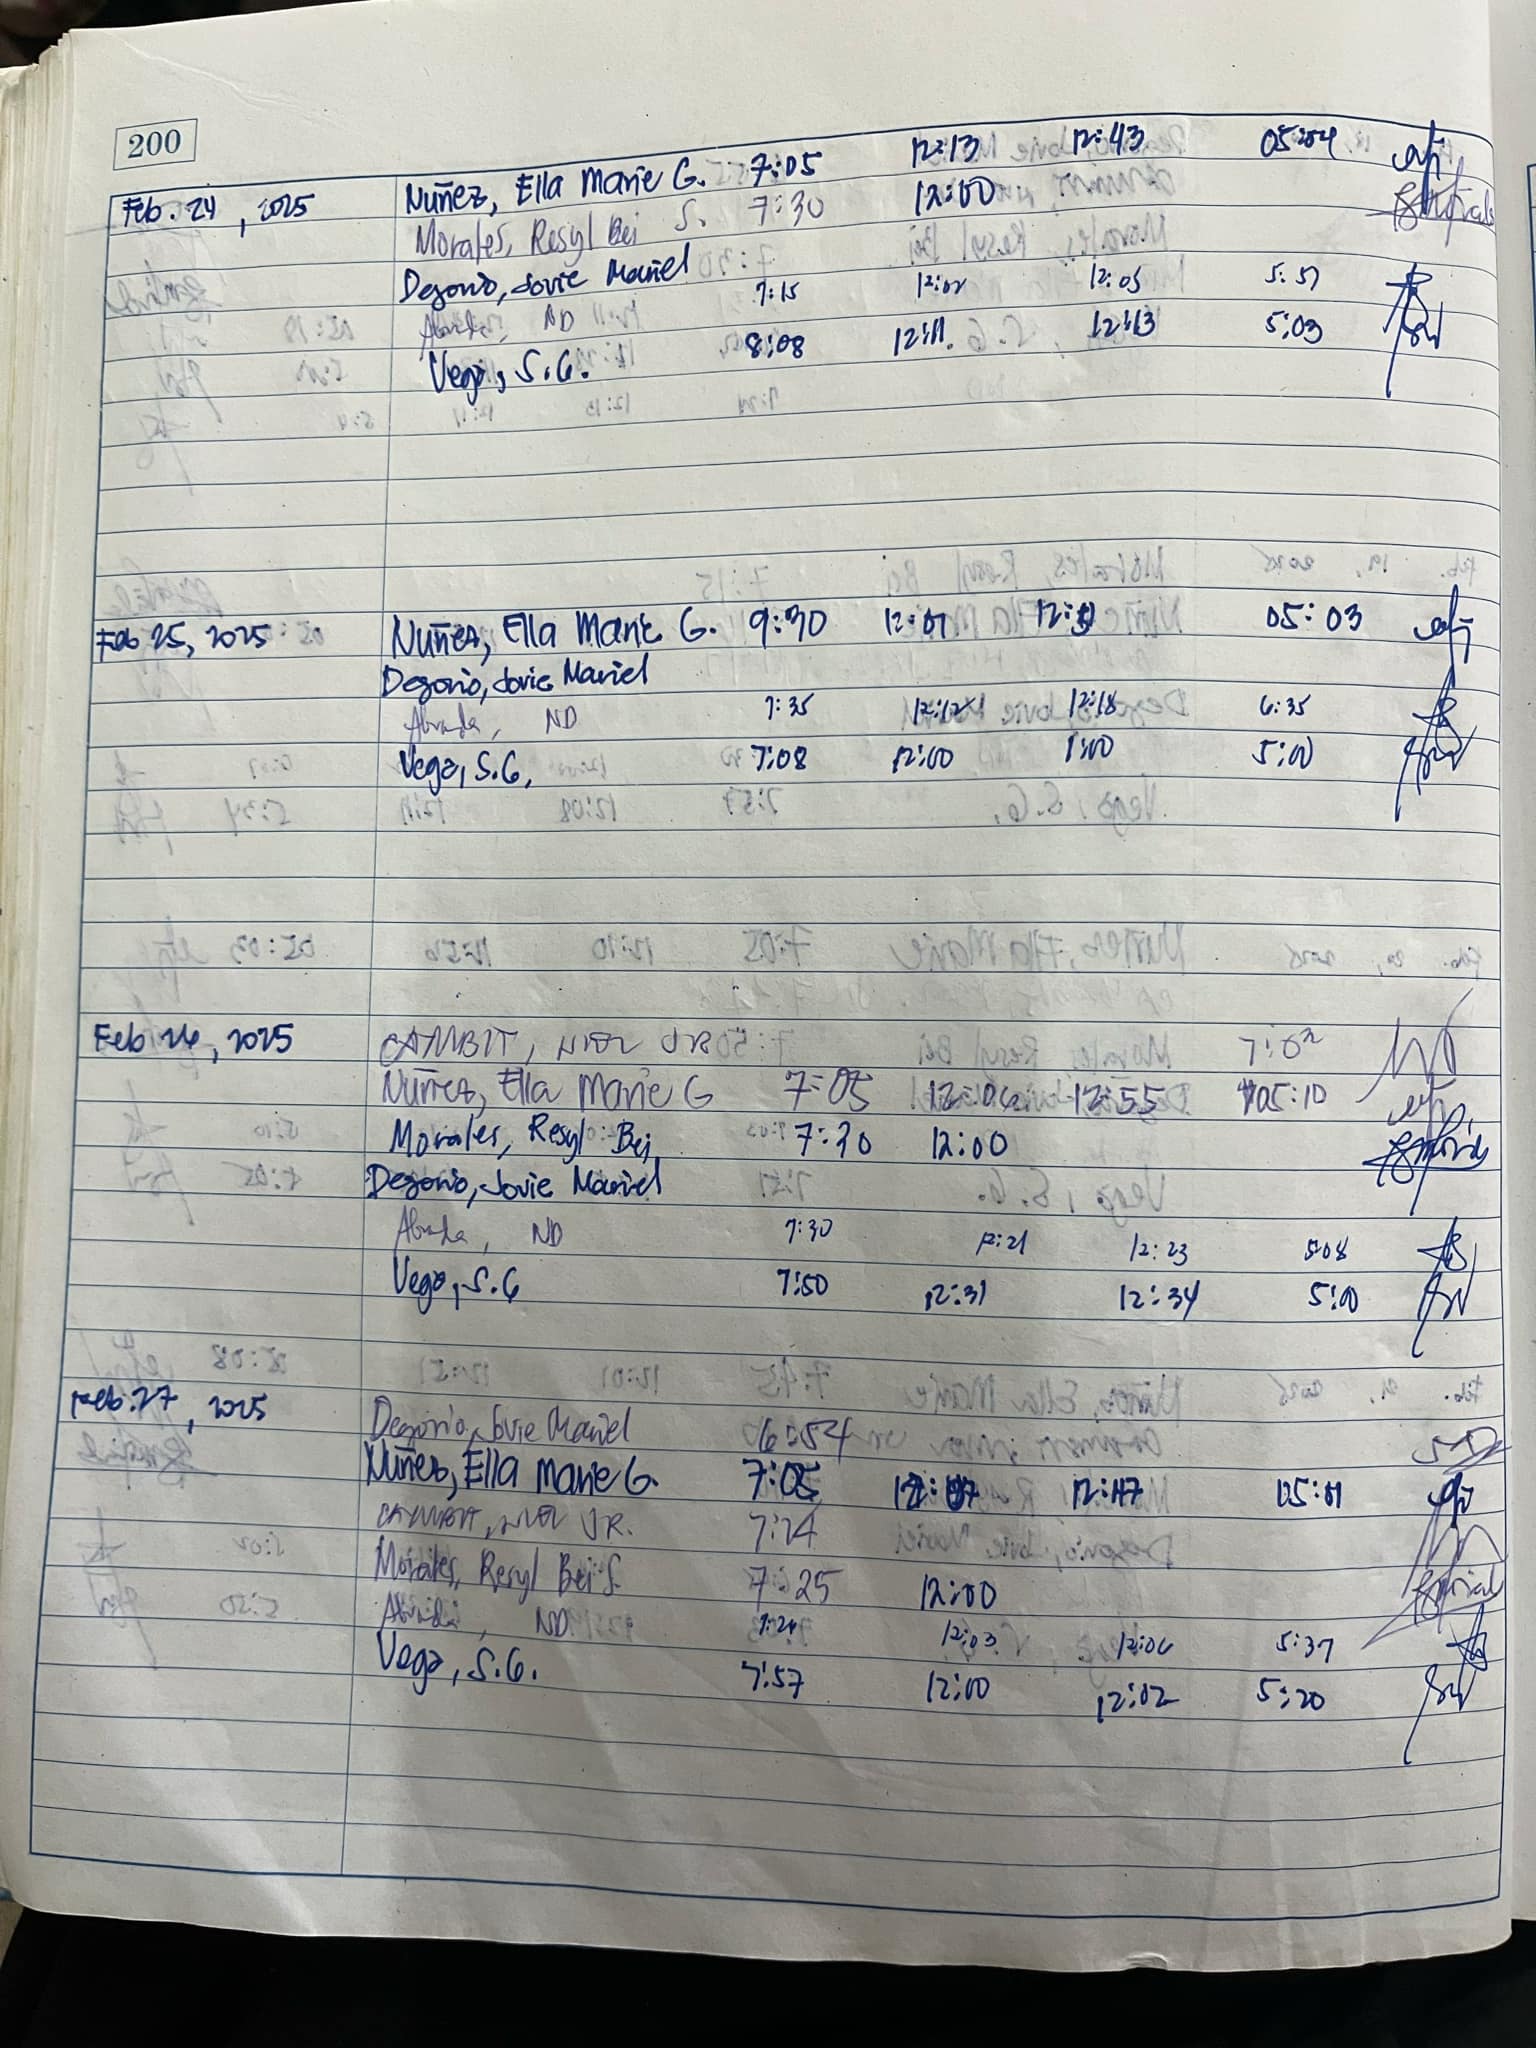 200
Feb. 24, 2025 Nuñez, Ella Marie G. 7:05 12:13 12:43 05:04
Morales, Resyl Bei S. 7:30 12:00
Degorio, Jovie Mariel
Abrada, ND 7:15 12:02 12:05 5:57
Vega, S.G. 8:08 12:11. 12:13 5:03
Feb 25, 2025 Nuñez, Ella Marie G. 9:30 12:07 05:03
Degorio, Jovie Mariel
Abrada, ND 7:35 12:12 12:18 6:35
Vega, S.G, 7:08 12:00 1:00 5:00
Feb 26, 2025 CAMBIT, NIEL JR 7:02
Nuñez, Ella Marie G 7:05 12:06 12:55 05:10
Morales, Resyl Bei 7:30 12:00
Degorio, Jovie Mariel
Abrada, ND 7:30 12:21 12:23 5:08
Vega, S.G 7:50 12:31 12:34 5:00
Feb. 27, 2025 Degorio, Jovie Mariel 6:54
Nuñez, Ella Marie G. 7:05 12:07 12:47 05:01
CAMBIT, NIEL JR. 7:24
Morales, Resyl Bei S. 7:25 12:00
Abrada, ND 7:24 12:03 12:06 5:37
Vega, S.G. 7:57 12:00 12:02 5:20